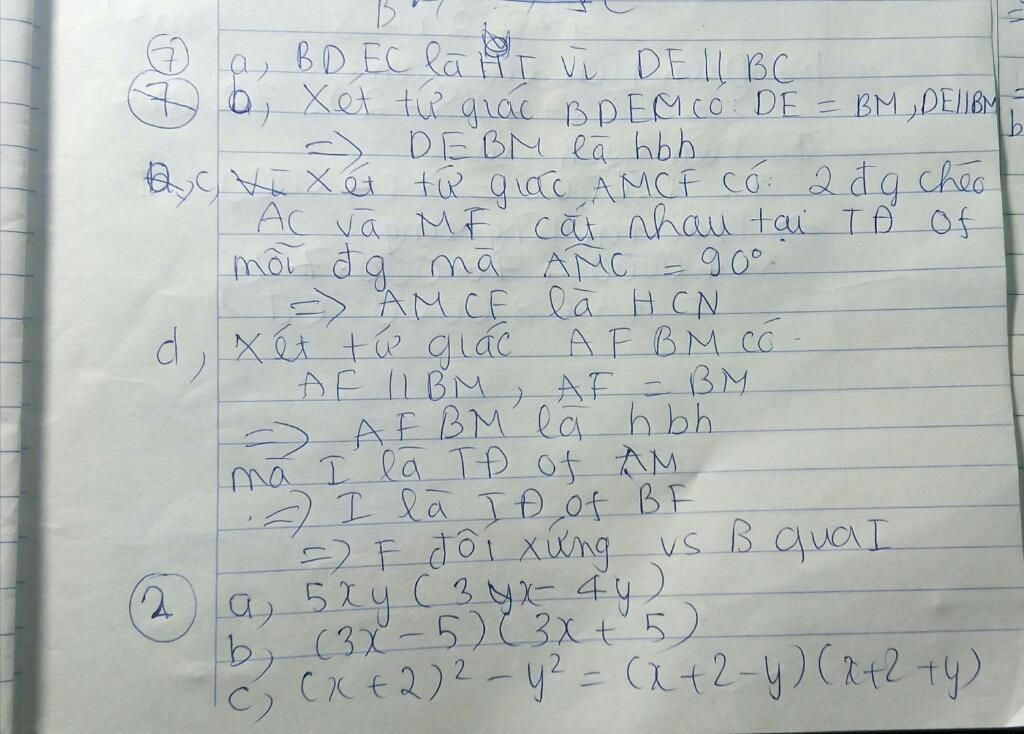 ⑦ a, BDEC là HT vì DE || BC
b, Xét tứ giác BDEM có: DE = BM, DE||BM
=> DEBM là hbh
c, Xét tứ giác AMCF có: 2 đg chéo
AC và MF cắt nhau tại TĐ of
mỗi đg mà AMC = 90°
=> AMCF là HCN
d, Xét tứ giác AFBM có
AF || BM, AF = BM
=> AFBM là hbh
mà I là TĐ of AM
=> I là TĐ of BF
=> F đối xứng vs B qua I
② a, 5xy (3yx - 4y)
b, (3x - 5)(3x + 5)
c, (x + 2)² - y² = (x + 2 - y)(x + 2 + y)